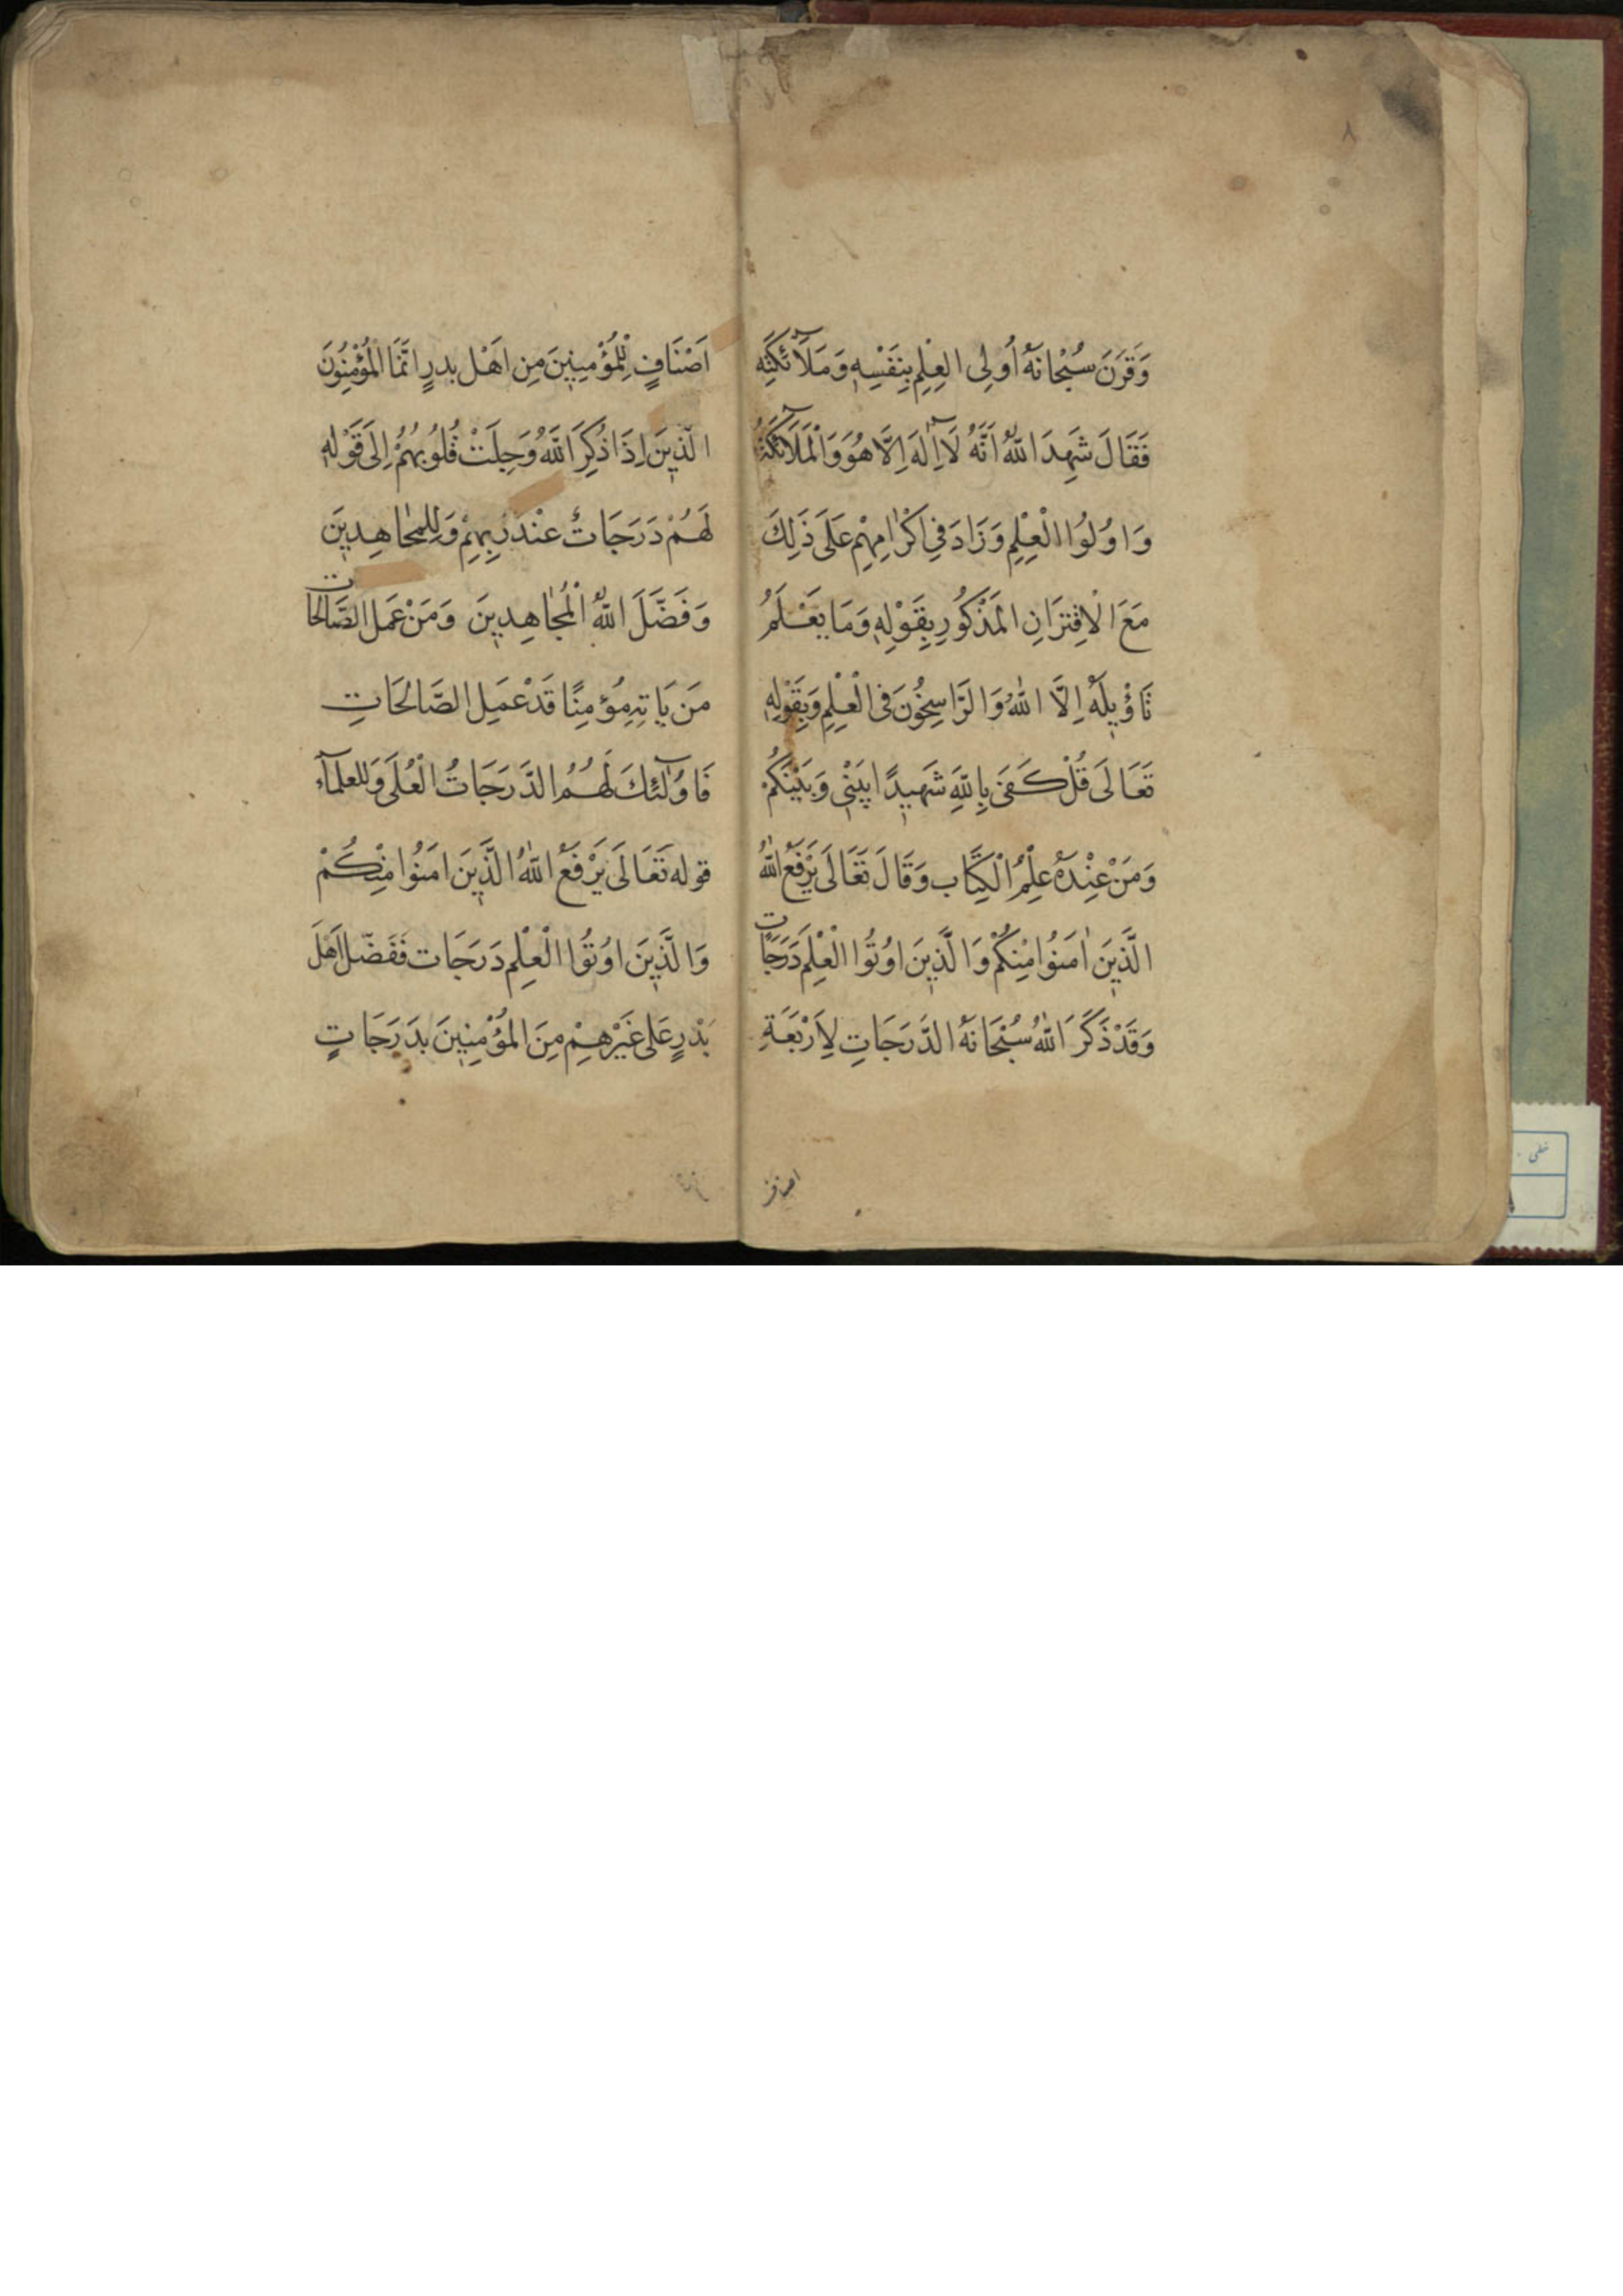 ٨
وَقَرَنَ سُبْحَانَهُ اُولِی العِلِمِ بِنَفْسِهٖ وَمَلَآئِكَتِهٖ
فَقَالَ شَهِدَ اللّٰهُ اَنَّهُ لَآ اِلٰهَ اِلَّا هُوَ وَالْمَلَآئِكَةُ
وَاُولُوا الْعِلِمِ وَزَادَ فِی اكْرٰامِهِمْ عَلَی ذَلِكَ
مَعَ الْاِقْتِرَانِ الْمَذْكُورِ بِقَوْلِهٖ وَمَا يَعْلَمُ
تَاْوٖيلَهُ اِلَّا اللّٰهُ وَالرَّاسِخُونَ فِی الْعِلْمِ وَبِقَوْلِهٖ
تَعَالَی قُلْ كَفَی بِاللّٰهِ شَهٖيدًا بَيْنٖی وَبَيْنَكُمْ
وَمَنْ عِنْدَهُ عِلْمُ الْكِتَابِ وَقَالَ تَعَالَی يَرْفَعُ اللّٰهُ
الَّذٖينَ اٰمَنُوا مِنْكُمْ وَالَّذٖينَ اُوتُوا الْعِلْمَ دَرَجَاتٍ
وَقَدْ ذَكَرَ اللّٰهُ سُبْحَانَهُ الدَّرَجَاتِ لِاَرْبَعَةِ
اصناف
اَصْنَافٍ لِلْمُؤْمِنٖينَ مِن اَهْل بدرٍ اِنَّمَا الْمُؤْمِنُونَ
الَّذٖينَ اِذَا ذُكِرَ اللّٰهُ وَجِلَتْ قُلُوبُهُمْ اِلَی قَوْلِهٖ
لَهُمْ دَرَجَاتٌ عِنْدَ رَبِّهِمْ وَلِلمُجٰاهِدٖينَ
وَفَضَّلَ اللّٰهُ الْمُجٰاهِدٖينَ وَمَنْ عَمَل الصَّالِحَات
مَن يَاتِهِ مُؤمِنًا قَدْ عَمِلَ الصَّالِحَاتِ
فَاُولٰٓئِكَ لَهُمُ الدَّرَجَاتُ الْعُلَی وَللعلمآء
قوله تَعَالَی يَرْفَعُ اللّٰهُ الَّذٖينَ امَنُوا مِنْكُمْ
وَالَّذٖينَ اوُتُوا الْعْلِم دَرَجَات فَفَضّلَ اَهَلَ
بَدْرٍ عَلی غَيْرْهِمْ مِنَ الْمُؤْمِنٖينَ بدَرَجَاتٍ
خطی